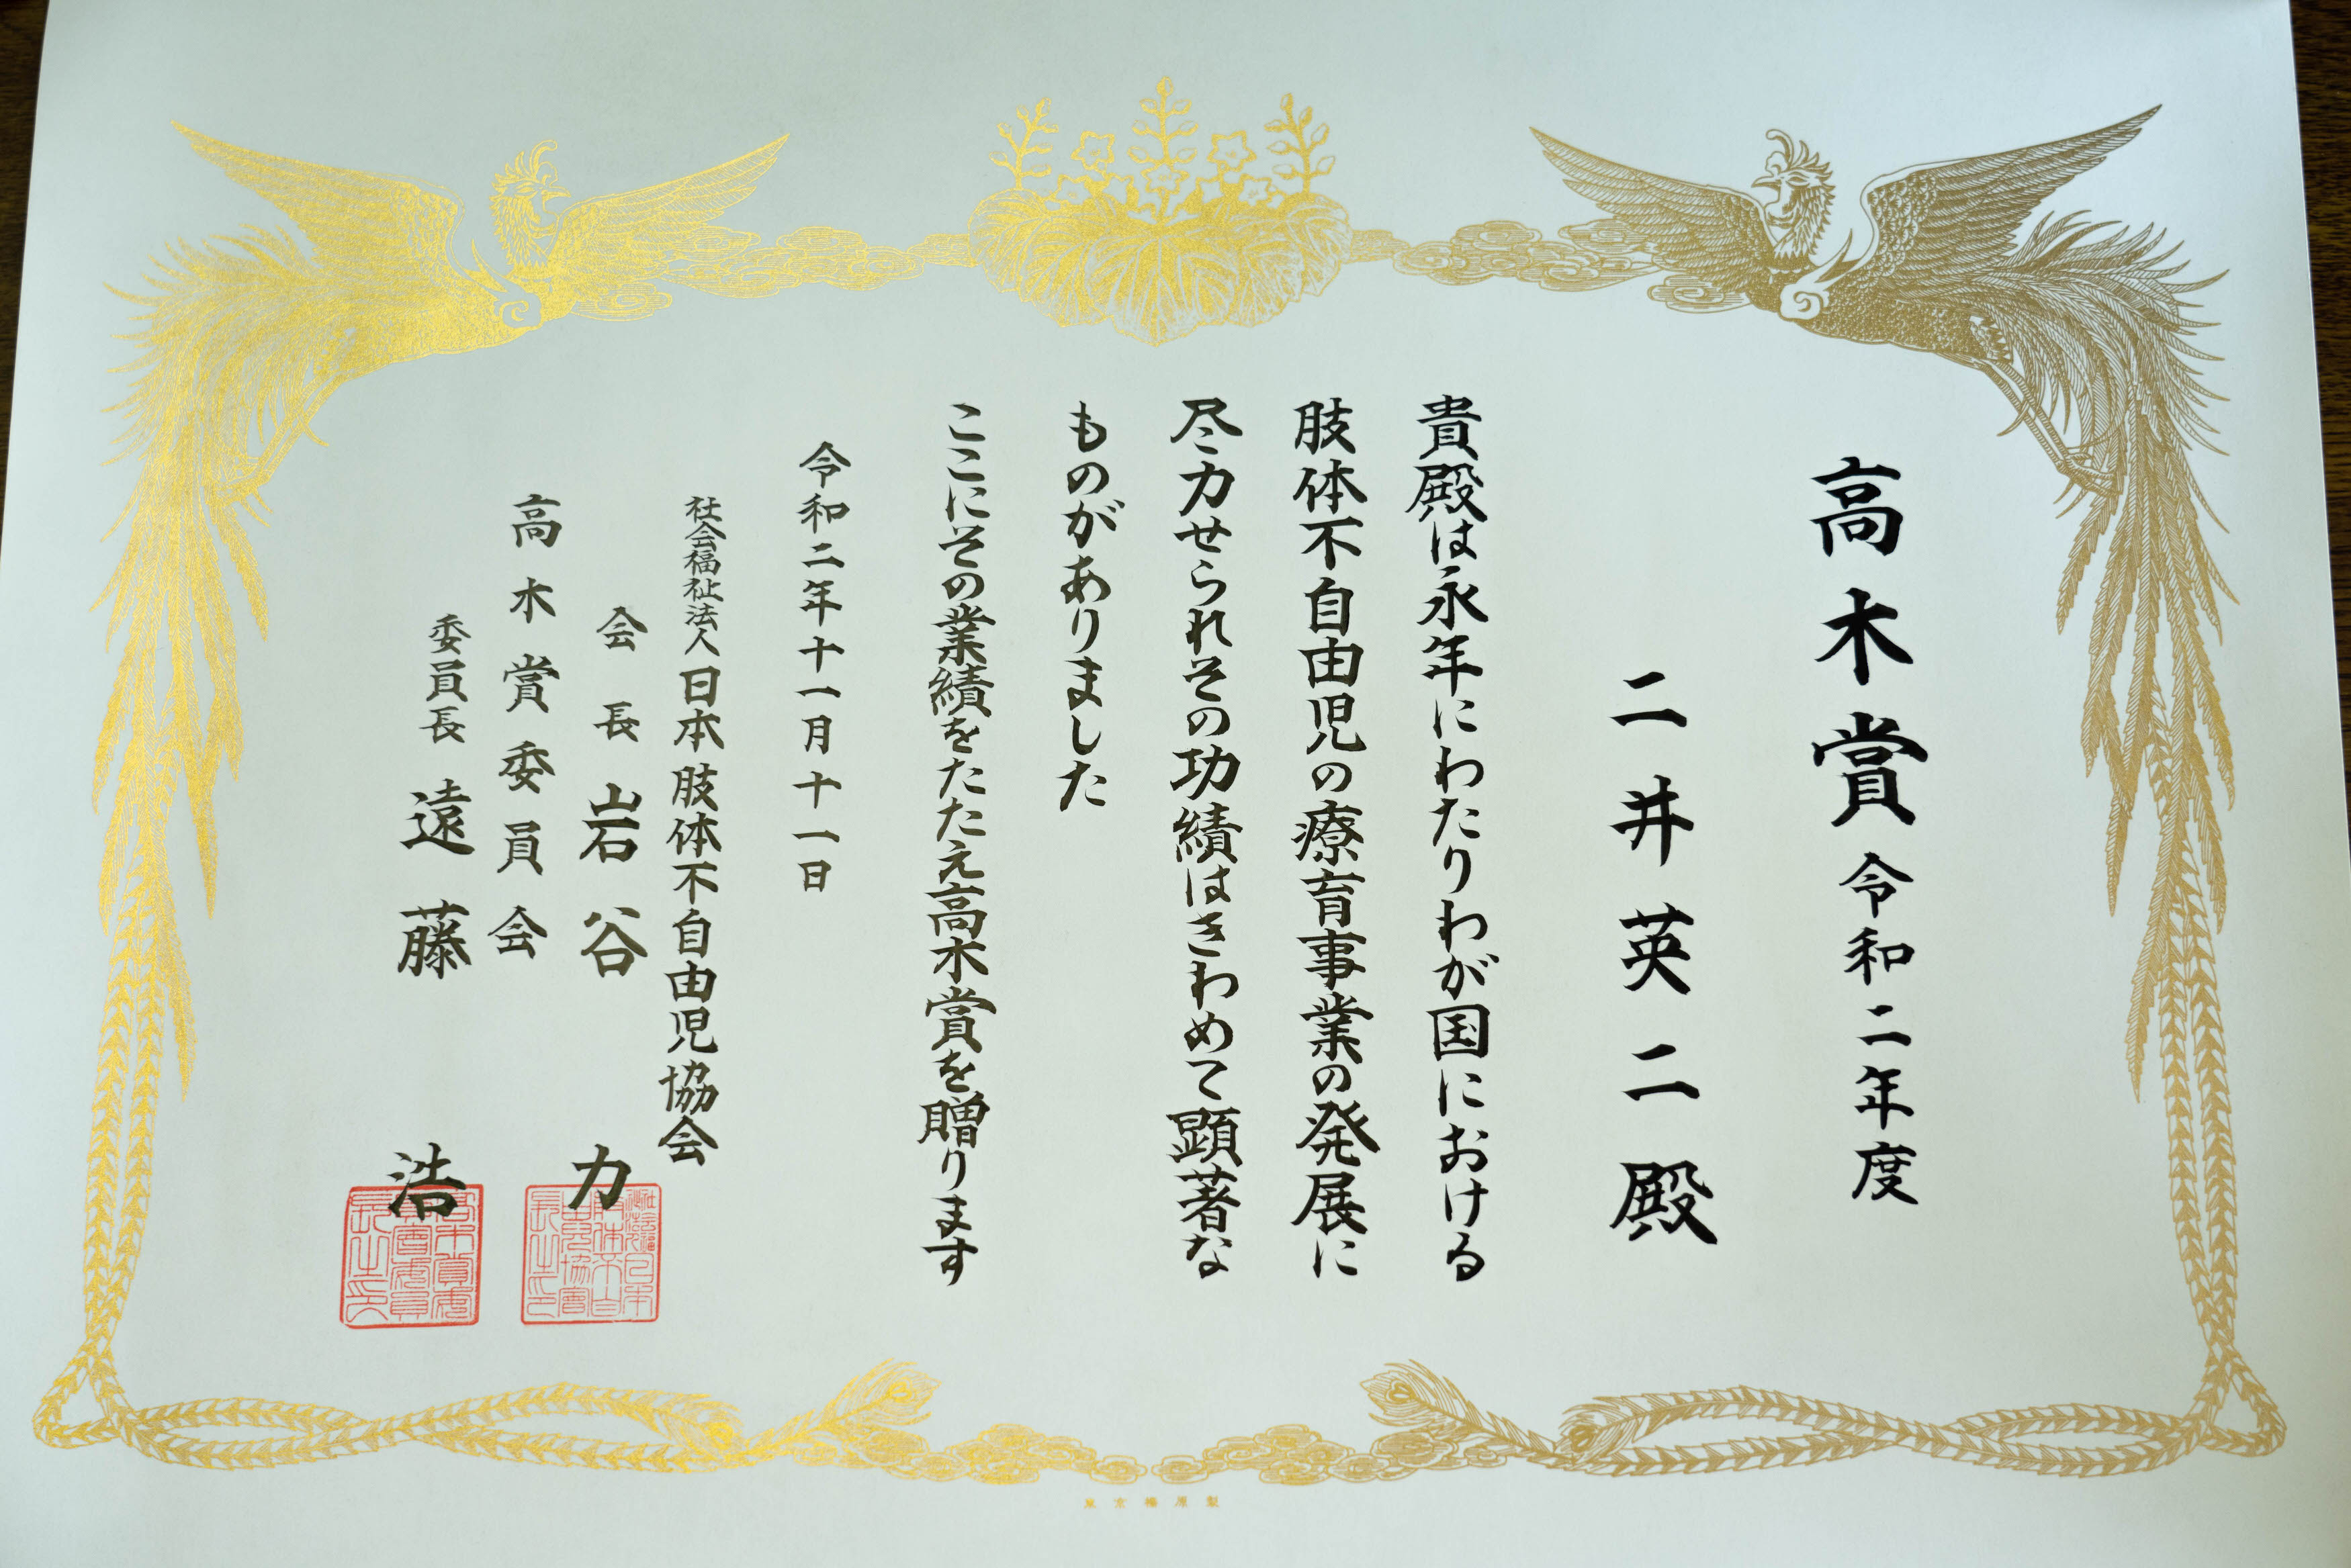 高木賞 令和二年度
二井英二殿
貴殿は永年にわたりわが国における
肢体不自由児の療育事業の発展に
尽力せられその功績はきわめて顕著な
ものがありました
ここにその業績をたたえ高木賞を贈ります
令和二年十一月十一日
社会福祉法人 日本肢体不自由児協会
会長 岩谷 力
高木賞委員会
委員長 遠藤 浩
東京榛原製